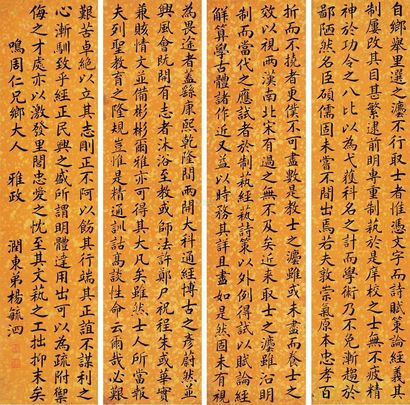 自鄉舉里選之灋不行取士者惟憑文字而詩賦策論經義視
制屢改其目甚繁逮前明專重制萟於是庠校之士無不疲精
神於功令之八比以為弋獲科名之計而學術乃不免漸趨於
鄙陋然名臣碩儒固未嘗不閒出焉若夫敦崇氣原本忠孝百
折而不撓者更僕不可盡數是教士之灋雖或未盡而養士之
效以視兩漢南北宋有過之無不及矣近來取士之灋雖沿明
制而當代之應試者於制萟經萟詩策以外例得試以賦論經
解算學古體諸作近又益以時務其詳且盡如是然固未有視
為畏途者蓋繇康熙乾隆間兩開大科通經博古之彥蔚然並
興風會既開有志者沐浴至教或師法許鄭尸祝程朱或華實
兼賅情文並備彬彬爾雅亦可得其大凡矣雖然士人所當報
夫列聖教育之隆規豈惟是精通訓詁高談性命云爾哉必艱
艱苦卓絕以立其志剛正不阿以飭其行端其正誼不謀利之
心漸馴致乎經正民興之盛所謂明體達用出可以為疏附禦
侮之才處亦以激發里閭忠愛之忱至其文萟之工拙抑末矣
鳴周仁兄鄉大人 雅政 潤東弟楊毓泗